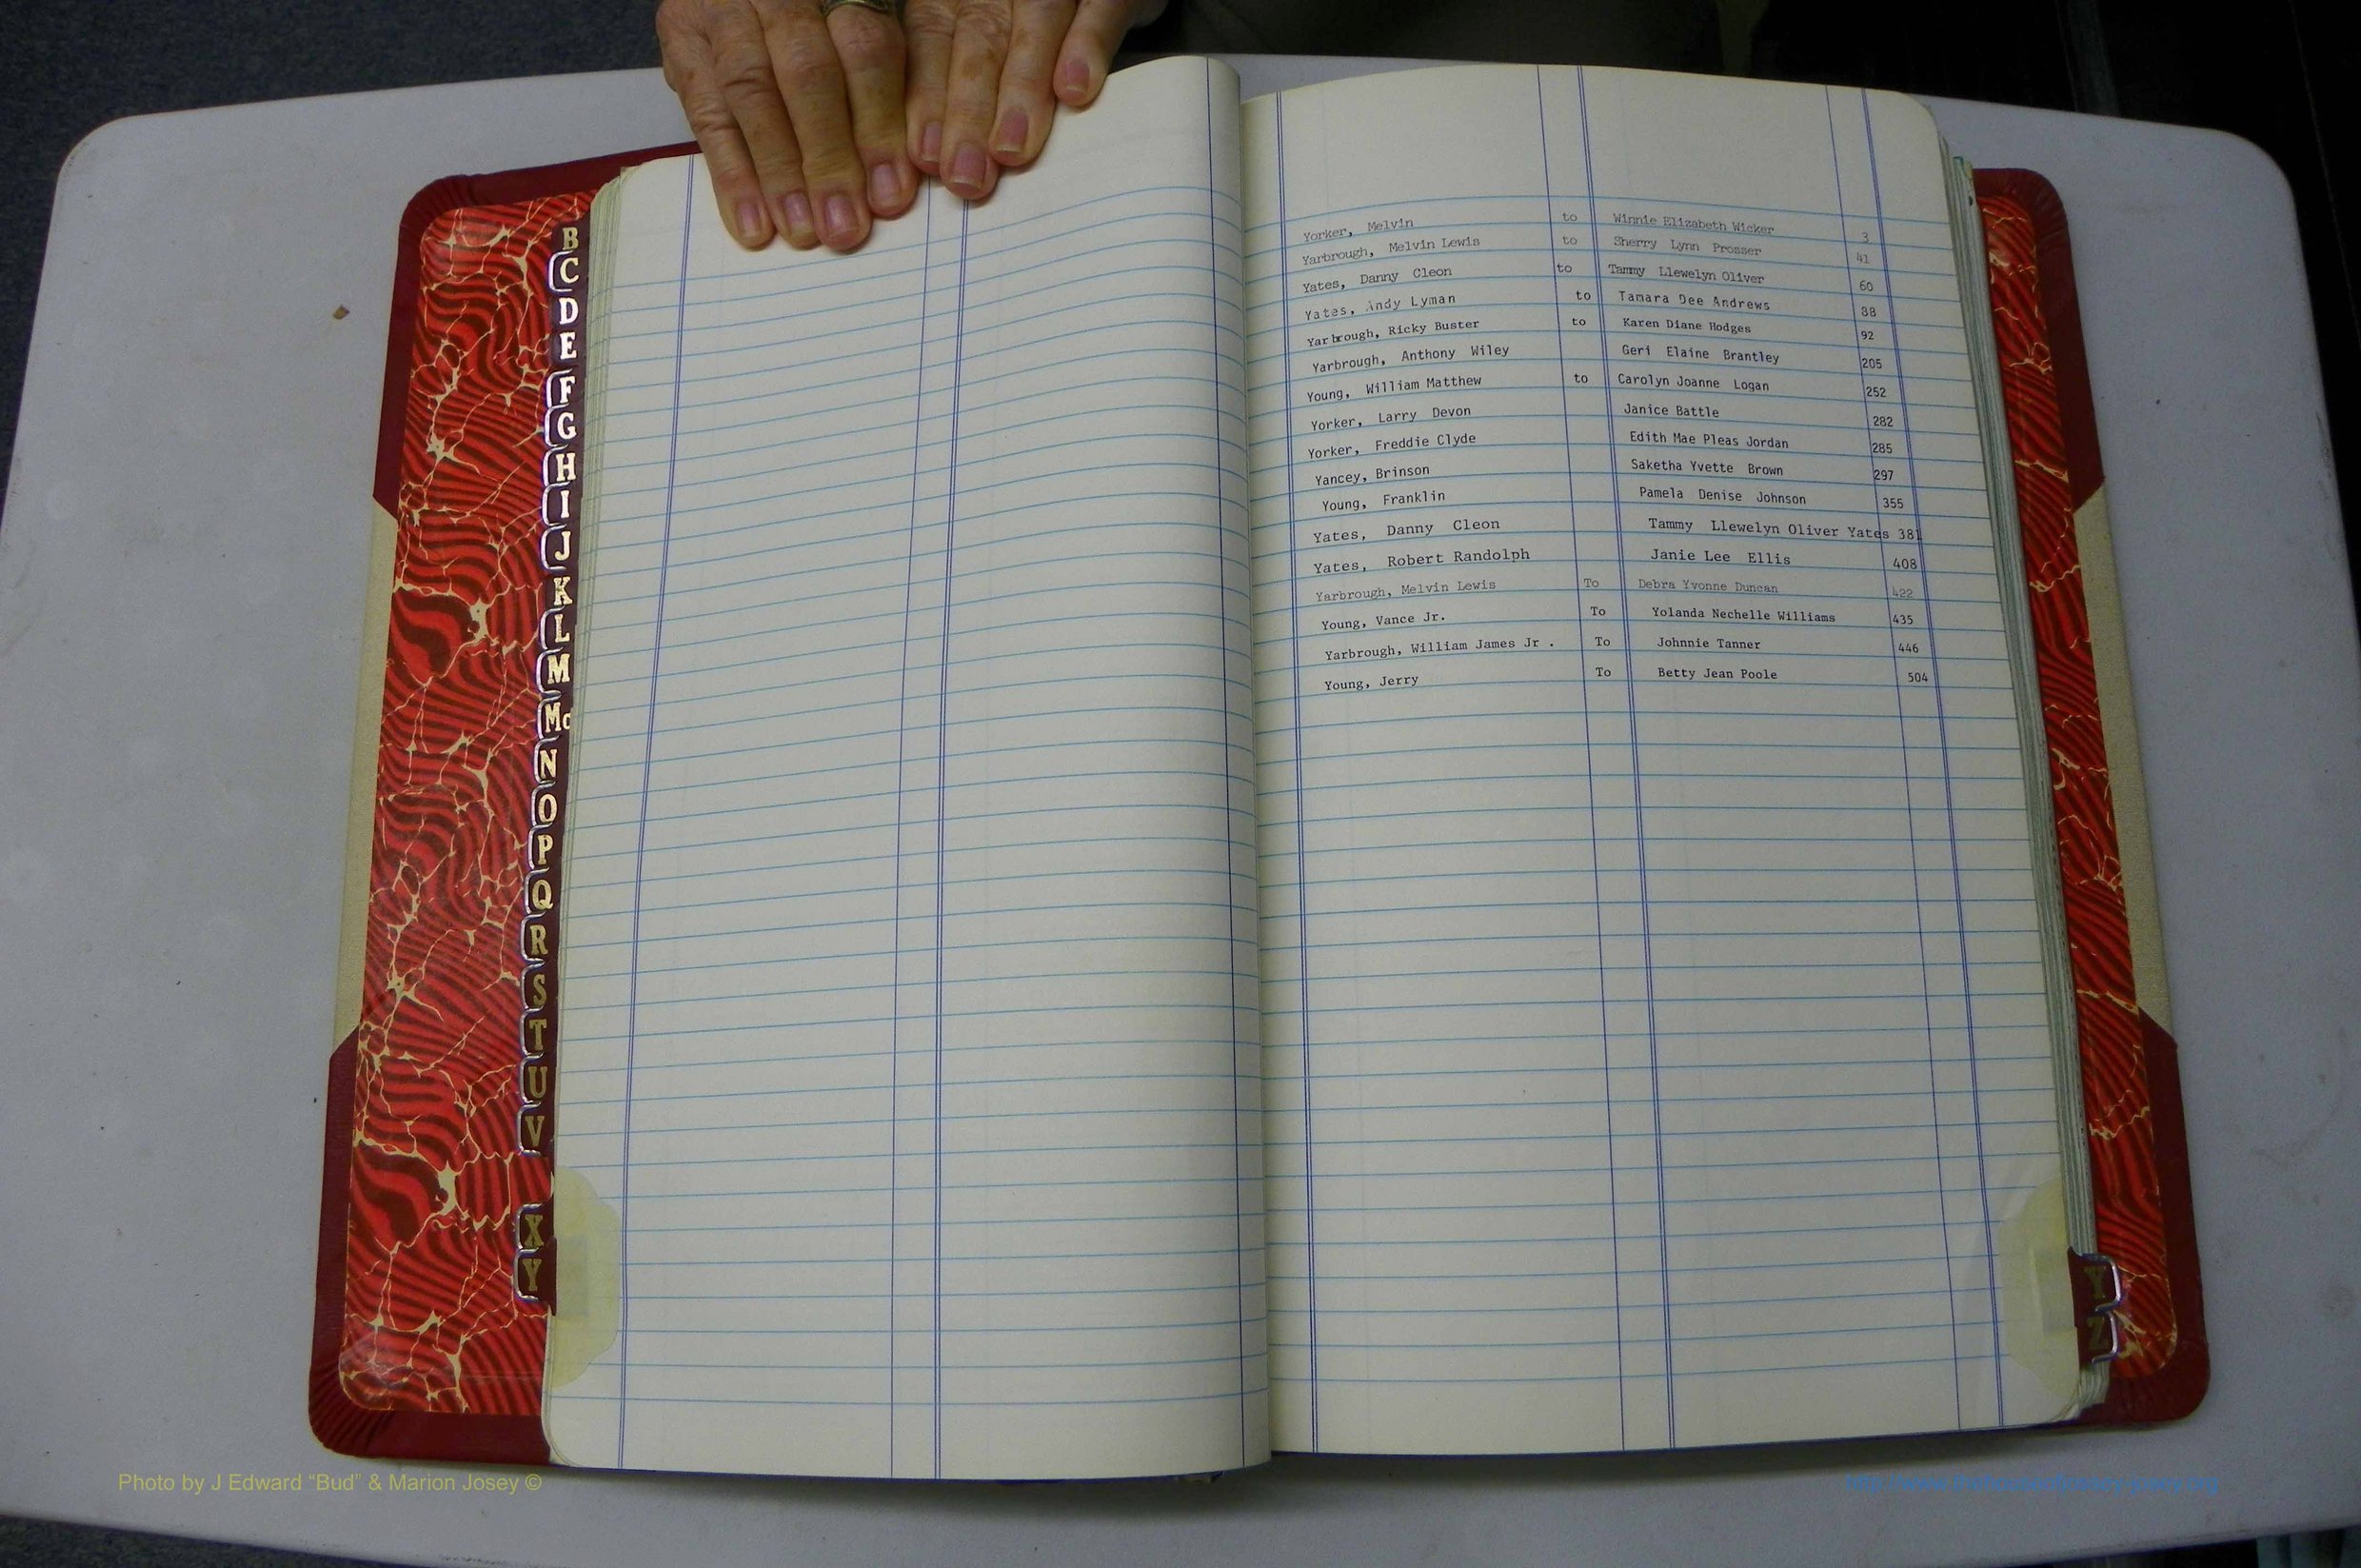 B
C
D
E
F
G
H
I
J
K
L
M
Mc
N
O
P
Q
R
S
T
U
V
X
Y
Yorker, Melvin to Winnie Elizabeth Wicker 3
Yarbrough, Melvin Lewis to Sherry Lynn Prosser 41
Yates, Danny Cleon to Tammy Llewelyn Oliver 60
Yates, Andy Lyman to Tamara Dee Andrews 88
Yarbrough, Ricky Buster to Karen Diane Hodges 92
Yarbrough, Anthony Wiley Geri Elaine Brantley 205
Young, William Matthew to Carolyn Joanne Logan 252
Yorker, Larry Devon Janice Battle 282
Yorker, Freddie Clyde Edith Mae Pleas Jordan 285
Yancey, Brinson Saketha Yvette Brown 297
Young, Franklin Pamela Denise Johnson 355
Yates, Danny Cleon Tammy Llewelyn Oliver Yates 381
Yates, Robert Randolph Janie Lee Ellis 408
Yarbrough, Melvin Lewis To Debra Yvonne Duncan 422
Young, Vance Jr. To Yolanda Nechelle Williams 435
Yarbrough, William James Jr . To Johnnie Tanner 446
Young, Jerry To Betty Jean Poole 504
Y
Z
Photo by J Edward “Bud” & Marion Josey ©